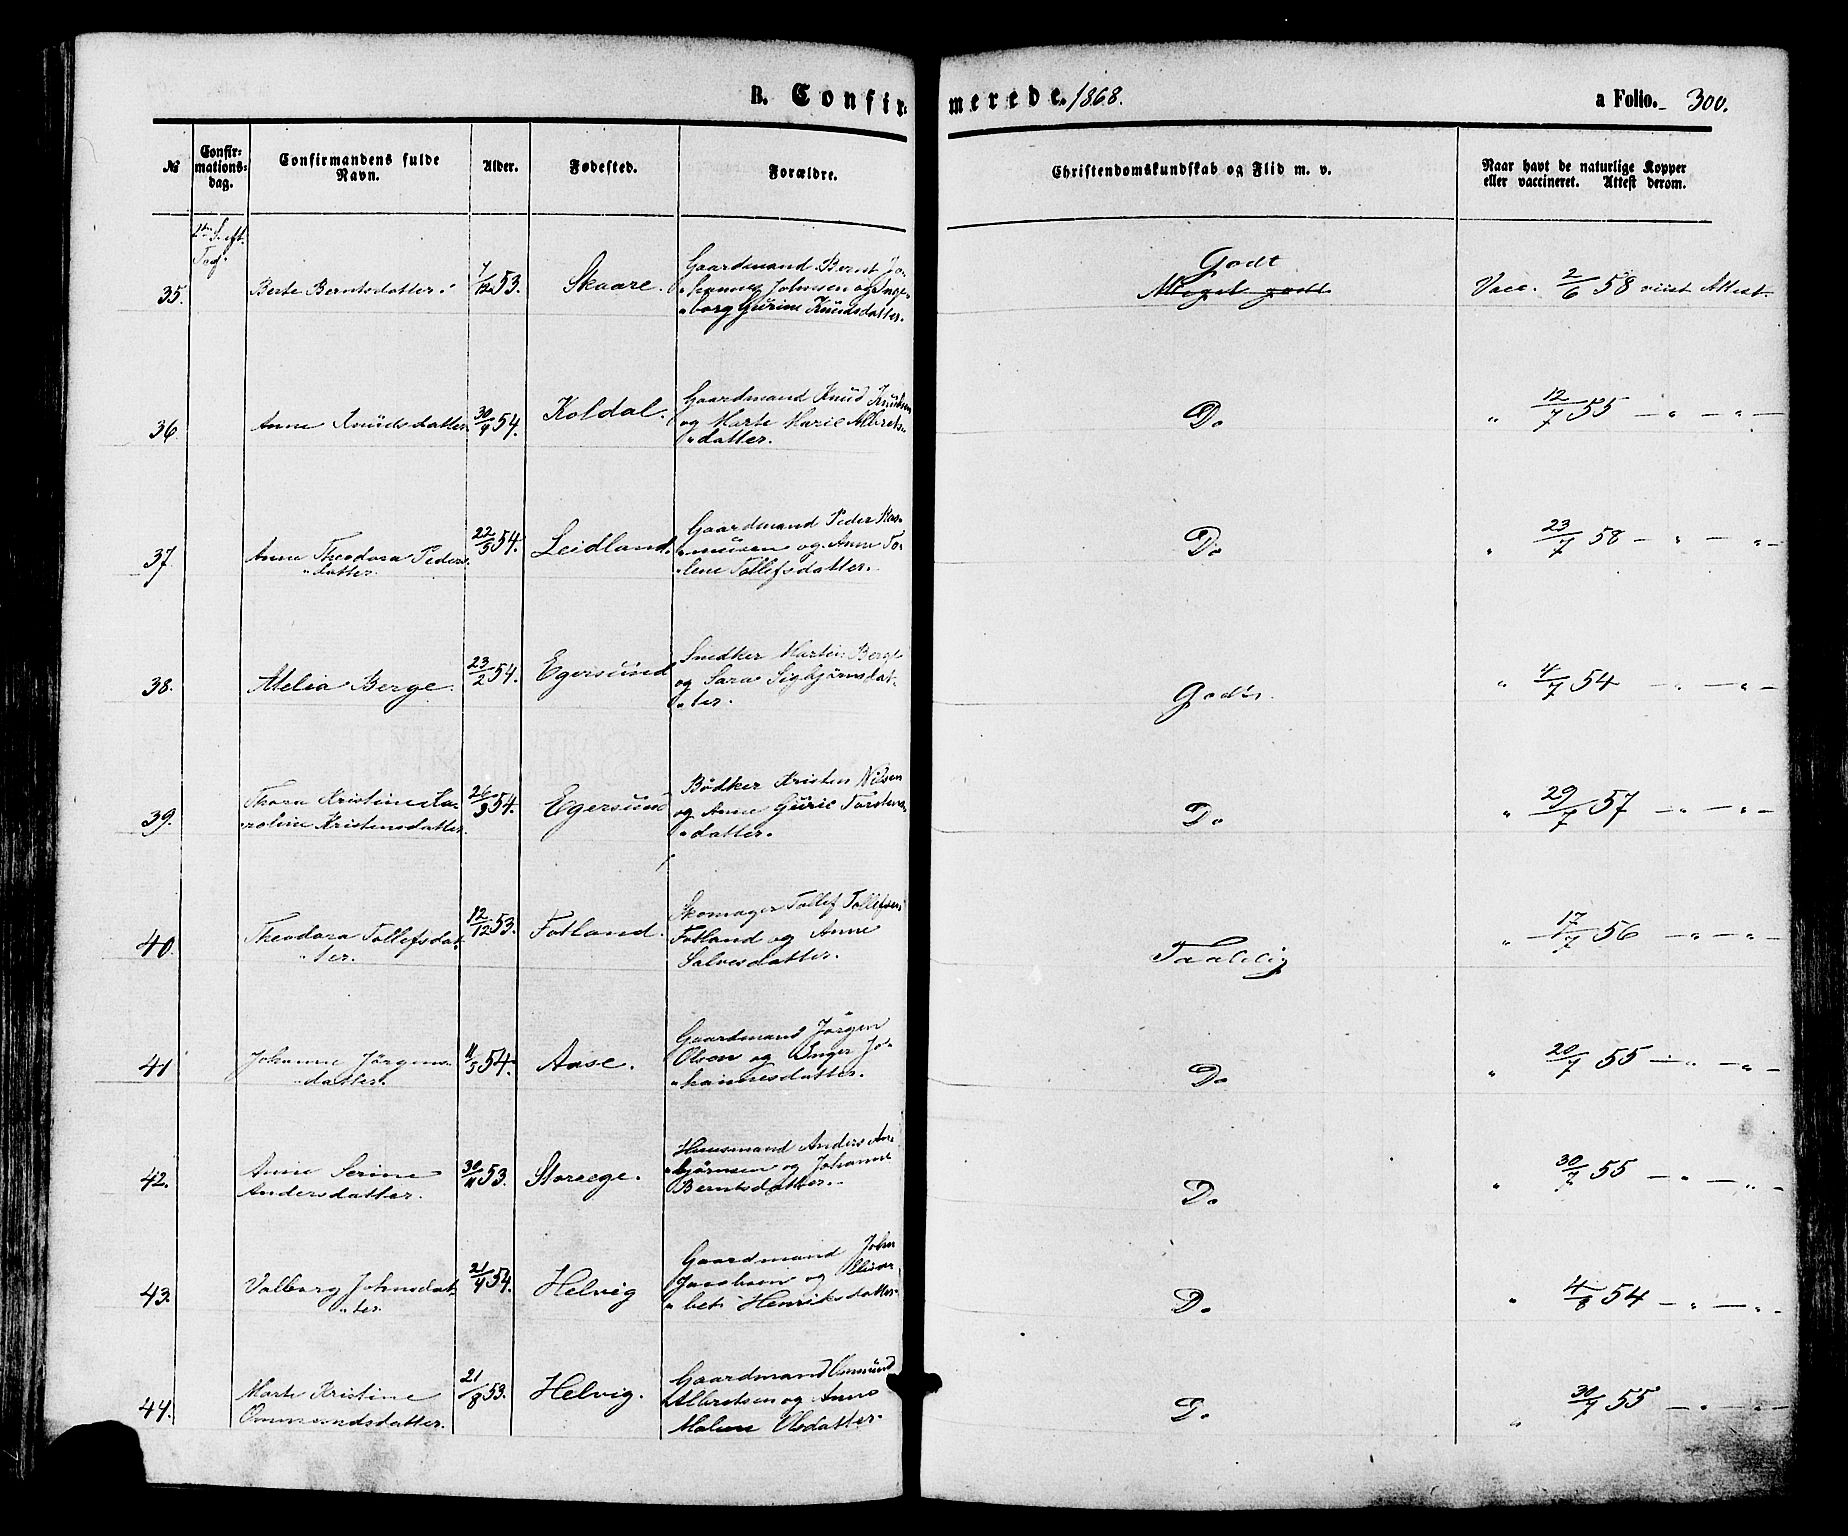 B. Confirmerede. 1868.
a Folio. 300.
№
Confir-
mations-
dag.
Confirmandens fulde
Navn.
Alder.
Fødested.
Forældre.
Christendomskundskab og Flid m. v.
Naar havt de naturlige Kopper
eller vaccineret. Attest derom.
35. Berte Berntsdatter. 7/12 53. Skaare.
Gaardmand Bernt Jo-
"hannes Johnsen og Inge-
"borg Gurine Knudsdatter.
Godt
Meget godt
Vacc. 2/6 58 viist Attest.
36. Anne Knudsdatter 30/4 54. Koldal.
Gaardmand Knud Knudsen
og Marte Marie Albrets-
"datter.
Do
" 12/7 55 — " — " —
37. Anna Theodora Peders-
"datter. 22/3 54. Leidland.
Gaardmand Peder Ras-
"musen og Anne To-
"lene Tollefsdatter.
Do
" 23/7 58 — " — " —
38. Melia Berge. 23/2 54. Egersund
Snedker Martin Berge
og Sara Sigbjørnsdat-
"ter.
Godt.
" 4/7 54 — " — " —
39. Thora Kristine Ka-
"roline Kristensdatter 26/3 54. Egersund
Bødker Kristen Nilsen
og Anne Gurie Torstens-
"datter.
Do
" 29/7 57 — " — " —
40. Theodora Tollefsdat-
"ter. 12/12 53. Fotland.
Skomager Tollef Tollefsen
Fotland og Anne
Salvesdatter.
Taalelig
" 17/7 56 — " — " —
41 Johanne Jörgens-
"datter. 11/3 54. Aase.
Gaardmand Jörgen
Olson og Inger Jo-
"hannesdatter.
Do
" 20/7 55 — " — " —
42. Anne Serine
Andersdatter. 30/11 53. Storeege.
Huusmand Anders As-
"bjørnsen og Johanne
Berntsdatter.
Do
" 30/7 55 — " — " —
43. Valborg Johnsdat-
"ter 21/4 54. Helvig
Gaardmand John
Jacobsen og Elisa-
"bet Henriksdatter.
Do
" 4/8 54 — " — " —
44. Marte Kristine
Ommundsdatter. 21/8 53. Helvig.
Gaardmand Ommund
Albretsen og Anne
Malene Olsdatter.
Do
" 30/7 55 — " — " —